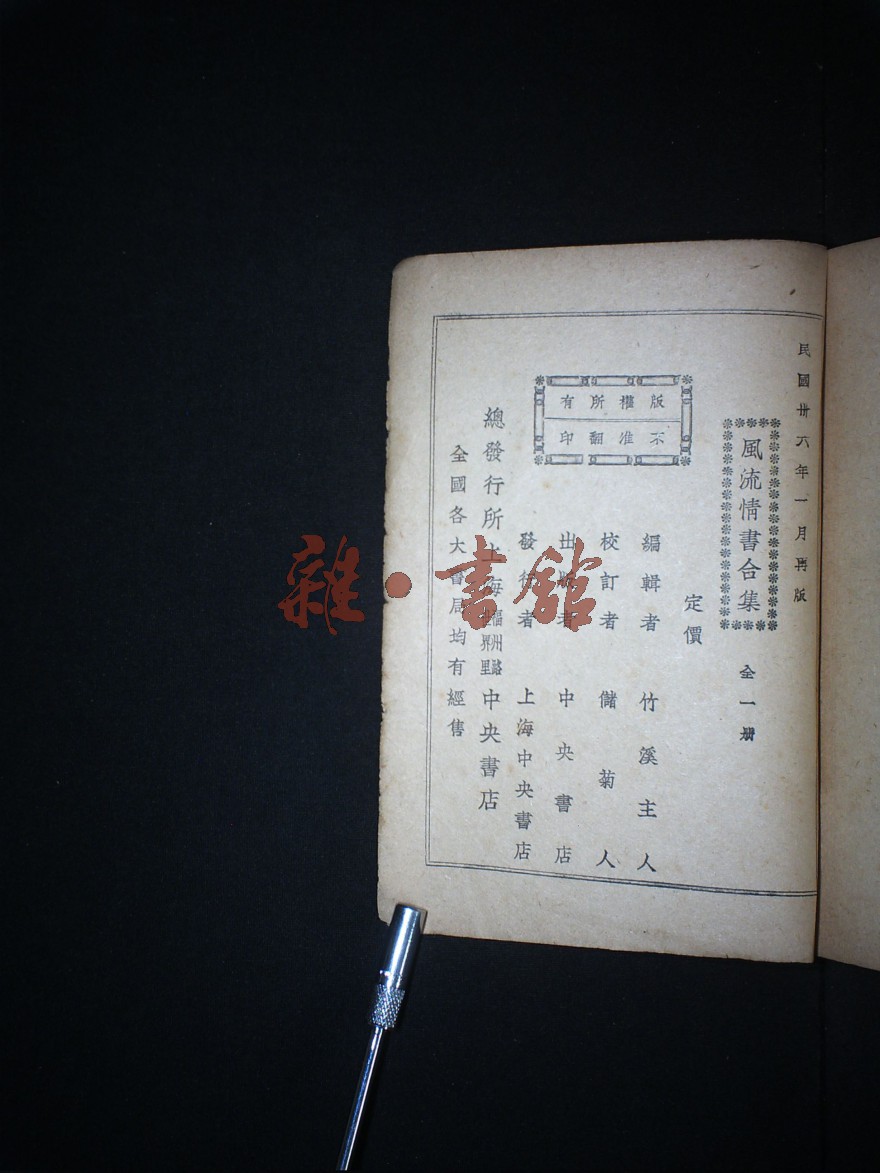 民國卅六年一月再版
風流情書合集
全一册
定價
版權所有
不准翻印
編輯者 竹溪主人
校訂者 儲菊人
出版者 中央書店
發行者 上海中央書店
總發行所上海福州路世界里中央書店
全國各大書局均有經售
雜·書館